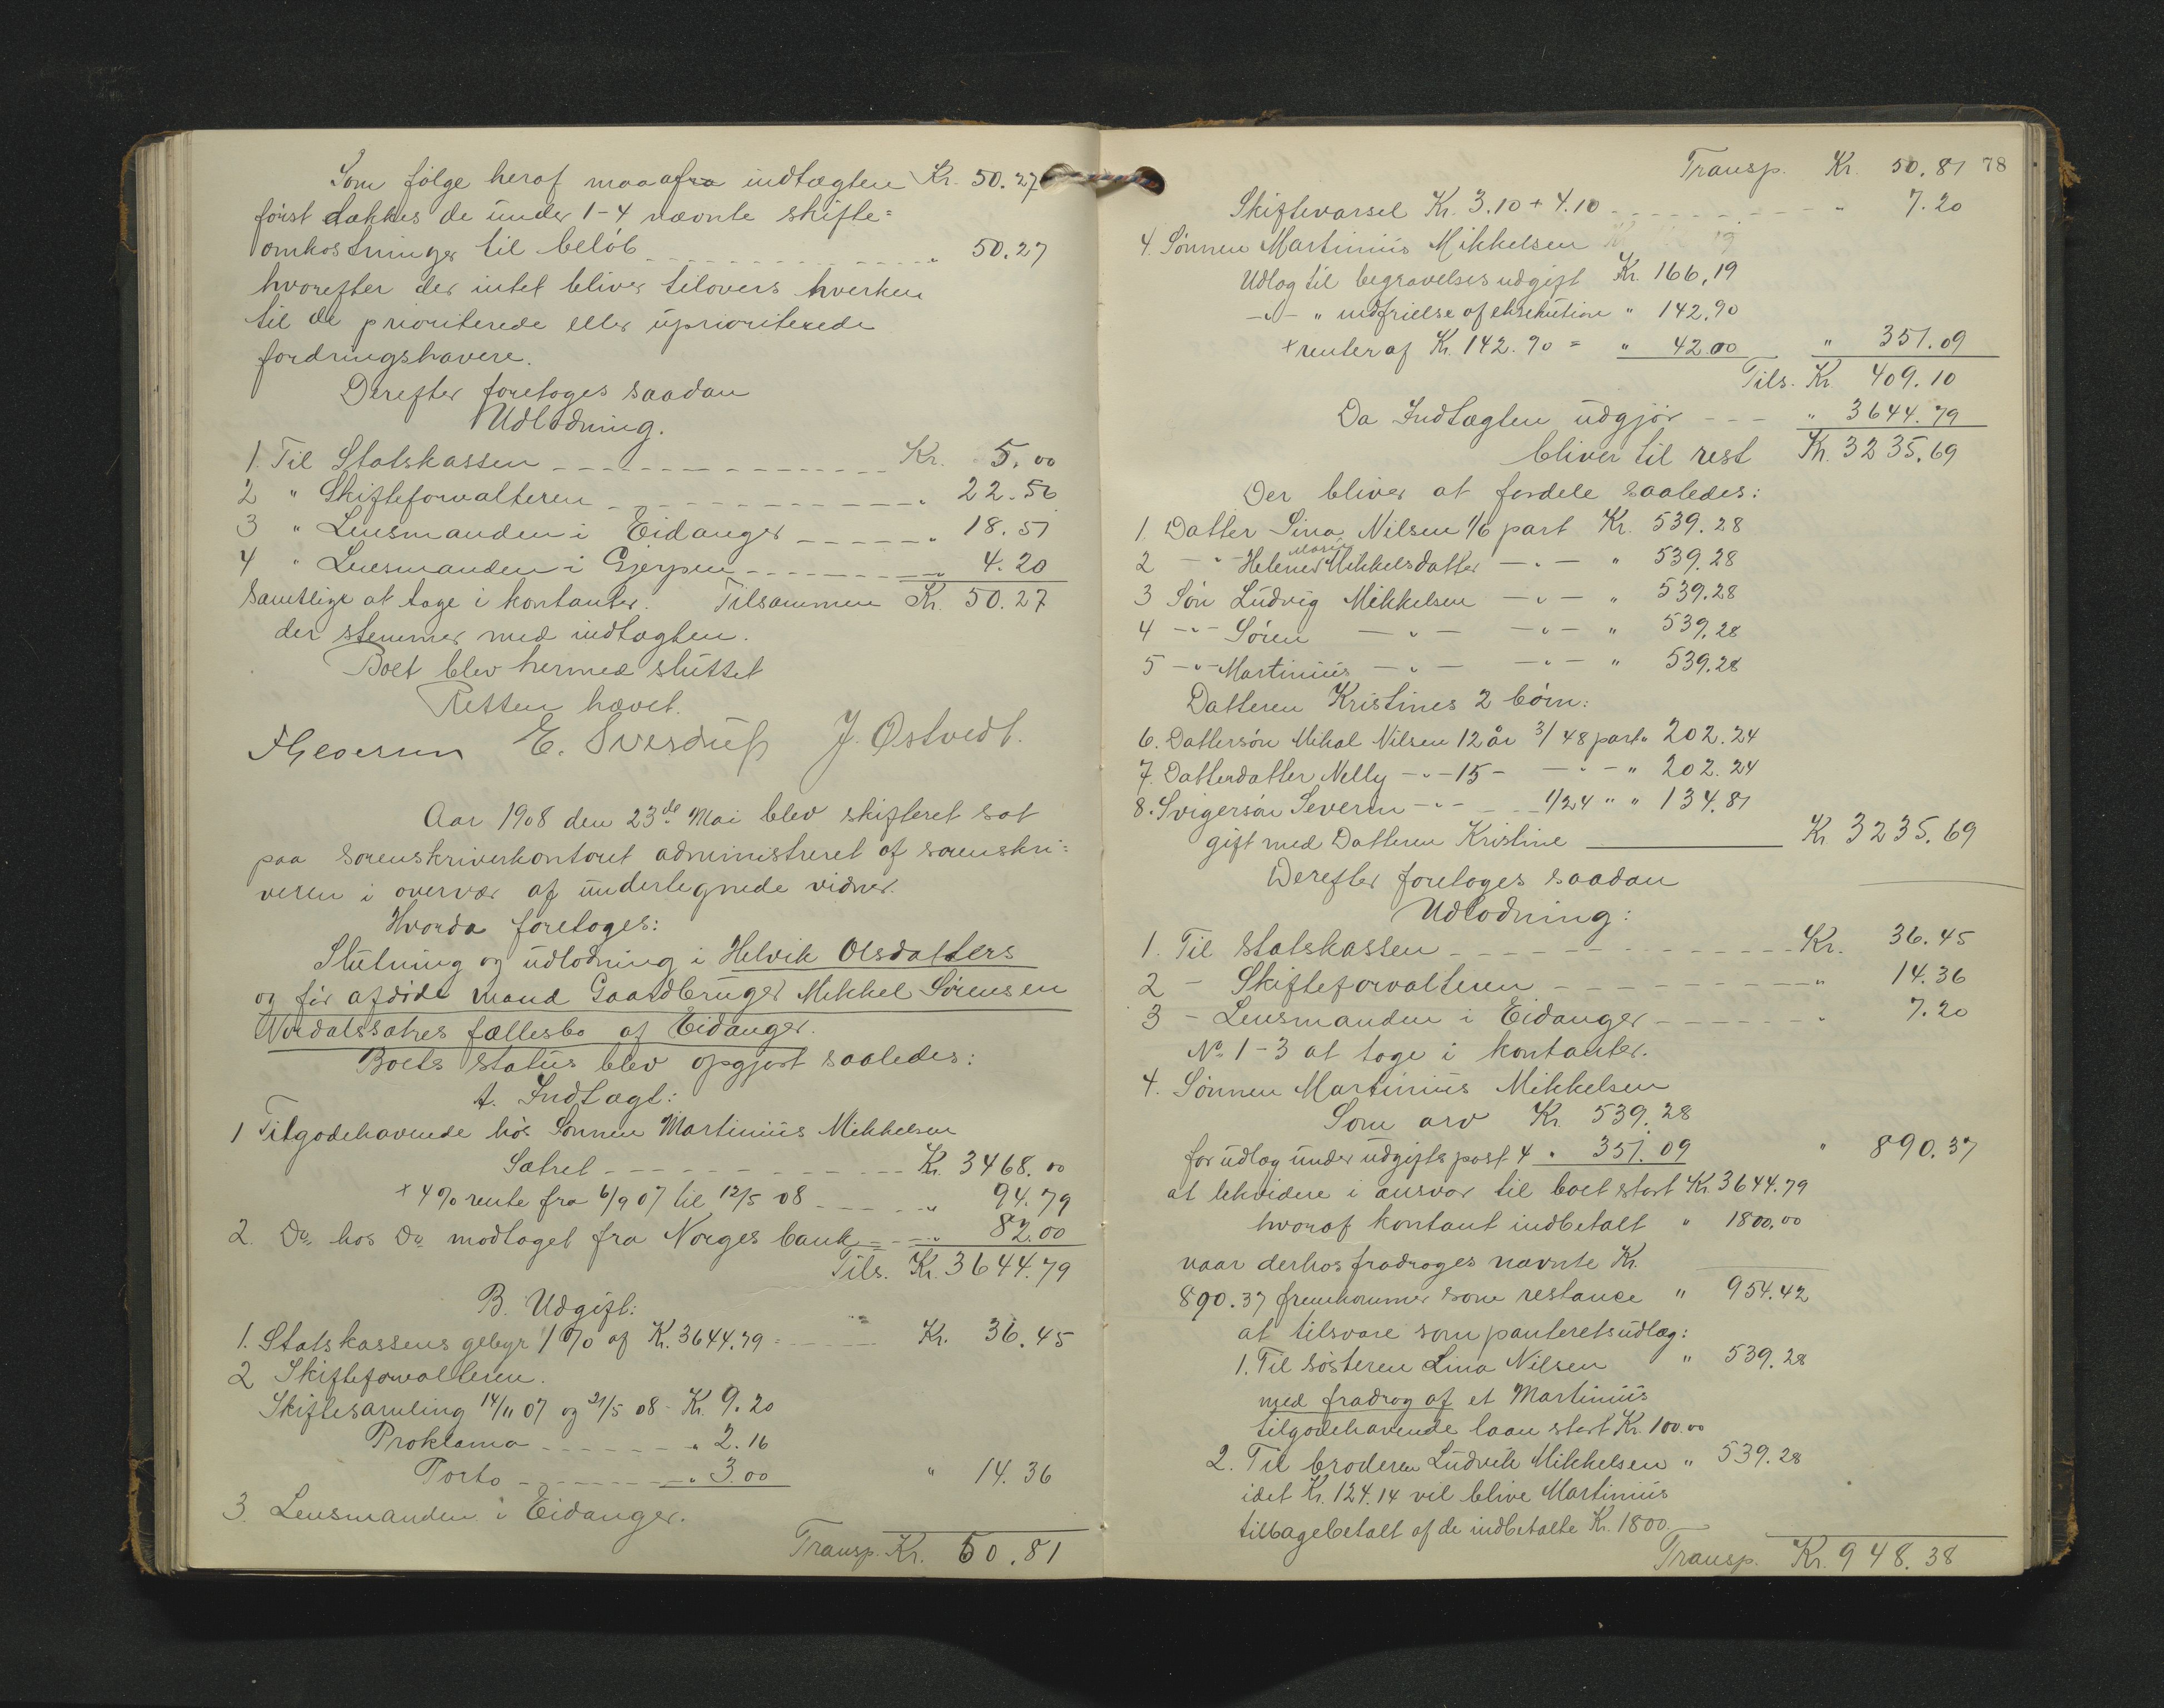 Som følge heraf maa afra indtægten Kr. 50.27
først dækkes de under 1-4 nævnte skifte=
omkostninger til beløb " 50.27
hvorefter der intet bliver tilovers hverken
til de prioriterede eller uprioriterede
fordringshavere.
Derefter foretoges saadan
Udlodning.
1. Til Statskassen Kr. 5.00
2 " Skifteforvalteren " 22.56
3 " Lensmanden i Eidanger " 18.51
4 " Lensmanden i Gjerpen " 4.20
Samtlige at tage i kontanter. Tilsammen Kr. 50.27
der stemmer med indtægten.
Boet blev hermed sluttet
Retten hævet.
E. Sverdrup J. Østvedt.
Aar 1908 den 23de Mai blev skifteret sat
paa sorenskriverkontoret administreret af sorenskri=
veren i overvær af undertegnede vidner.
Hvorda foretoges:
Slutning og udlodning i Helvik Olsdatters
og før afdøde mand Gaardbruger Mikkel Sørensen
Nordalssætres fællesbo af Eidanger.
Boets status blev opgjort saaledes:
A. Indtægt:
1 Tilgodehavende hos Sønnen Martinius Mikkelsen
Sætret Kr. 3468.00
+ 4% rente fra 6/9 07 til 12/5 08 " 94.79
2. Do hos Do modtaget fra Norges bank " 82.00
Tils. Kr. 3644.79
B. Udgift:
1. Statskassens gebyr 1% af Kr. 3644.79 = Kr. 36.45
2 Skifteforvalteren.
Skiftesamling 14/11 07 og 21/5 08 - Kr. 9.20
Proklama " 2.16
Porto " 3.00 " 14.36
3. Lensmanden i Eidanger.
Transp. Kr. 50.81
Transp. Kr. 50.81 78
Skiftevarsel Kr. 3.10 + 4.10 " 7.20
4. Sønnen Martinius Mikkelsen
Udlæg til begravelsesudgift Kr. 166.19
-"- " indfrielse af eksekution " 142.90
+ renter af Kr. 142.90 = " 42.00 " 351.09
Tils. Kr. 409.10
Da Indtægten udgjør " 3644.79
bliver til rest Kr. 3235.69
Der bliver at fordele saaledes:
1. Datter Lina Nilsen 1/6 part Kr. 539.28
2 -"- Helene Maren Mikkelsdatter -"- " 539.28
3 Søn Ludvig Mikkelsen -"- " 539.28
4 -"- Søren -"- -"- " 539.28
5 -"- Martinius -"- -"- " 539.28
Datteren Kristines 2 børn:
6. Dattersøn Mikal Nilsen 12 år 3/48 part " 202.24
7. Datterdatter Nelly -"- 15 - -"- " 202.24
8. Svigersøn Severin -"- 1/24 " " 134.81
gift med Datteren Kristine Kr 3235.69
Derefter foretoges saadan
Udlodning:
1. Til Statskassen Kr. 36.45
2 - Skifteforvalteren " 14.36
3 - Lensmanden i Eidanger " 7.20
No 1-3 at tage i kontanter.
4. Sønnen Martinius Mikkelsen
Som arv Kr. 539.28
for udlæg under udgifts post 4 " 351.09 " 890.37
at lekvidere i ansvar til boet stort Kr. 3644.79
hvoraf kontant indbetalt " 1800.00
naar derhos fradrages nævnte Kr.
890.37 fremkommer som restance " 954.42
at tilsvare som panteretsudlæg:
1. Til søsteren Lina Nilsen " 539.28
med fradrag af et Martinius
tilgodehavende laan stort Kr. 100.00
2. Til broderen Ludvik Mikkelsen " 539.28
idet Kr. 124.14 vil blive Martinius
tilbagebetalt af de indbetalte Kr. 1800.
Transp. Kr. 948.38